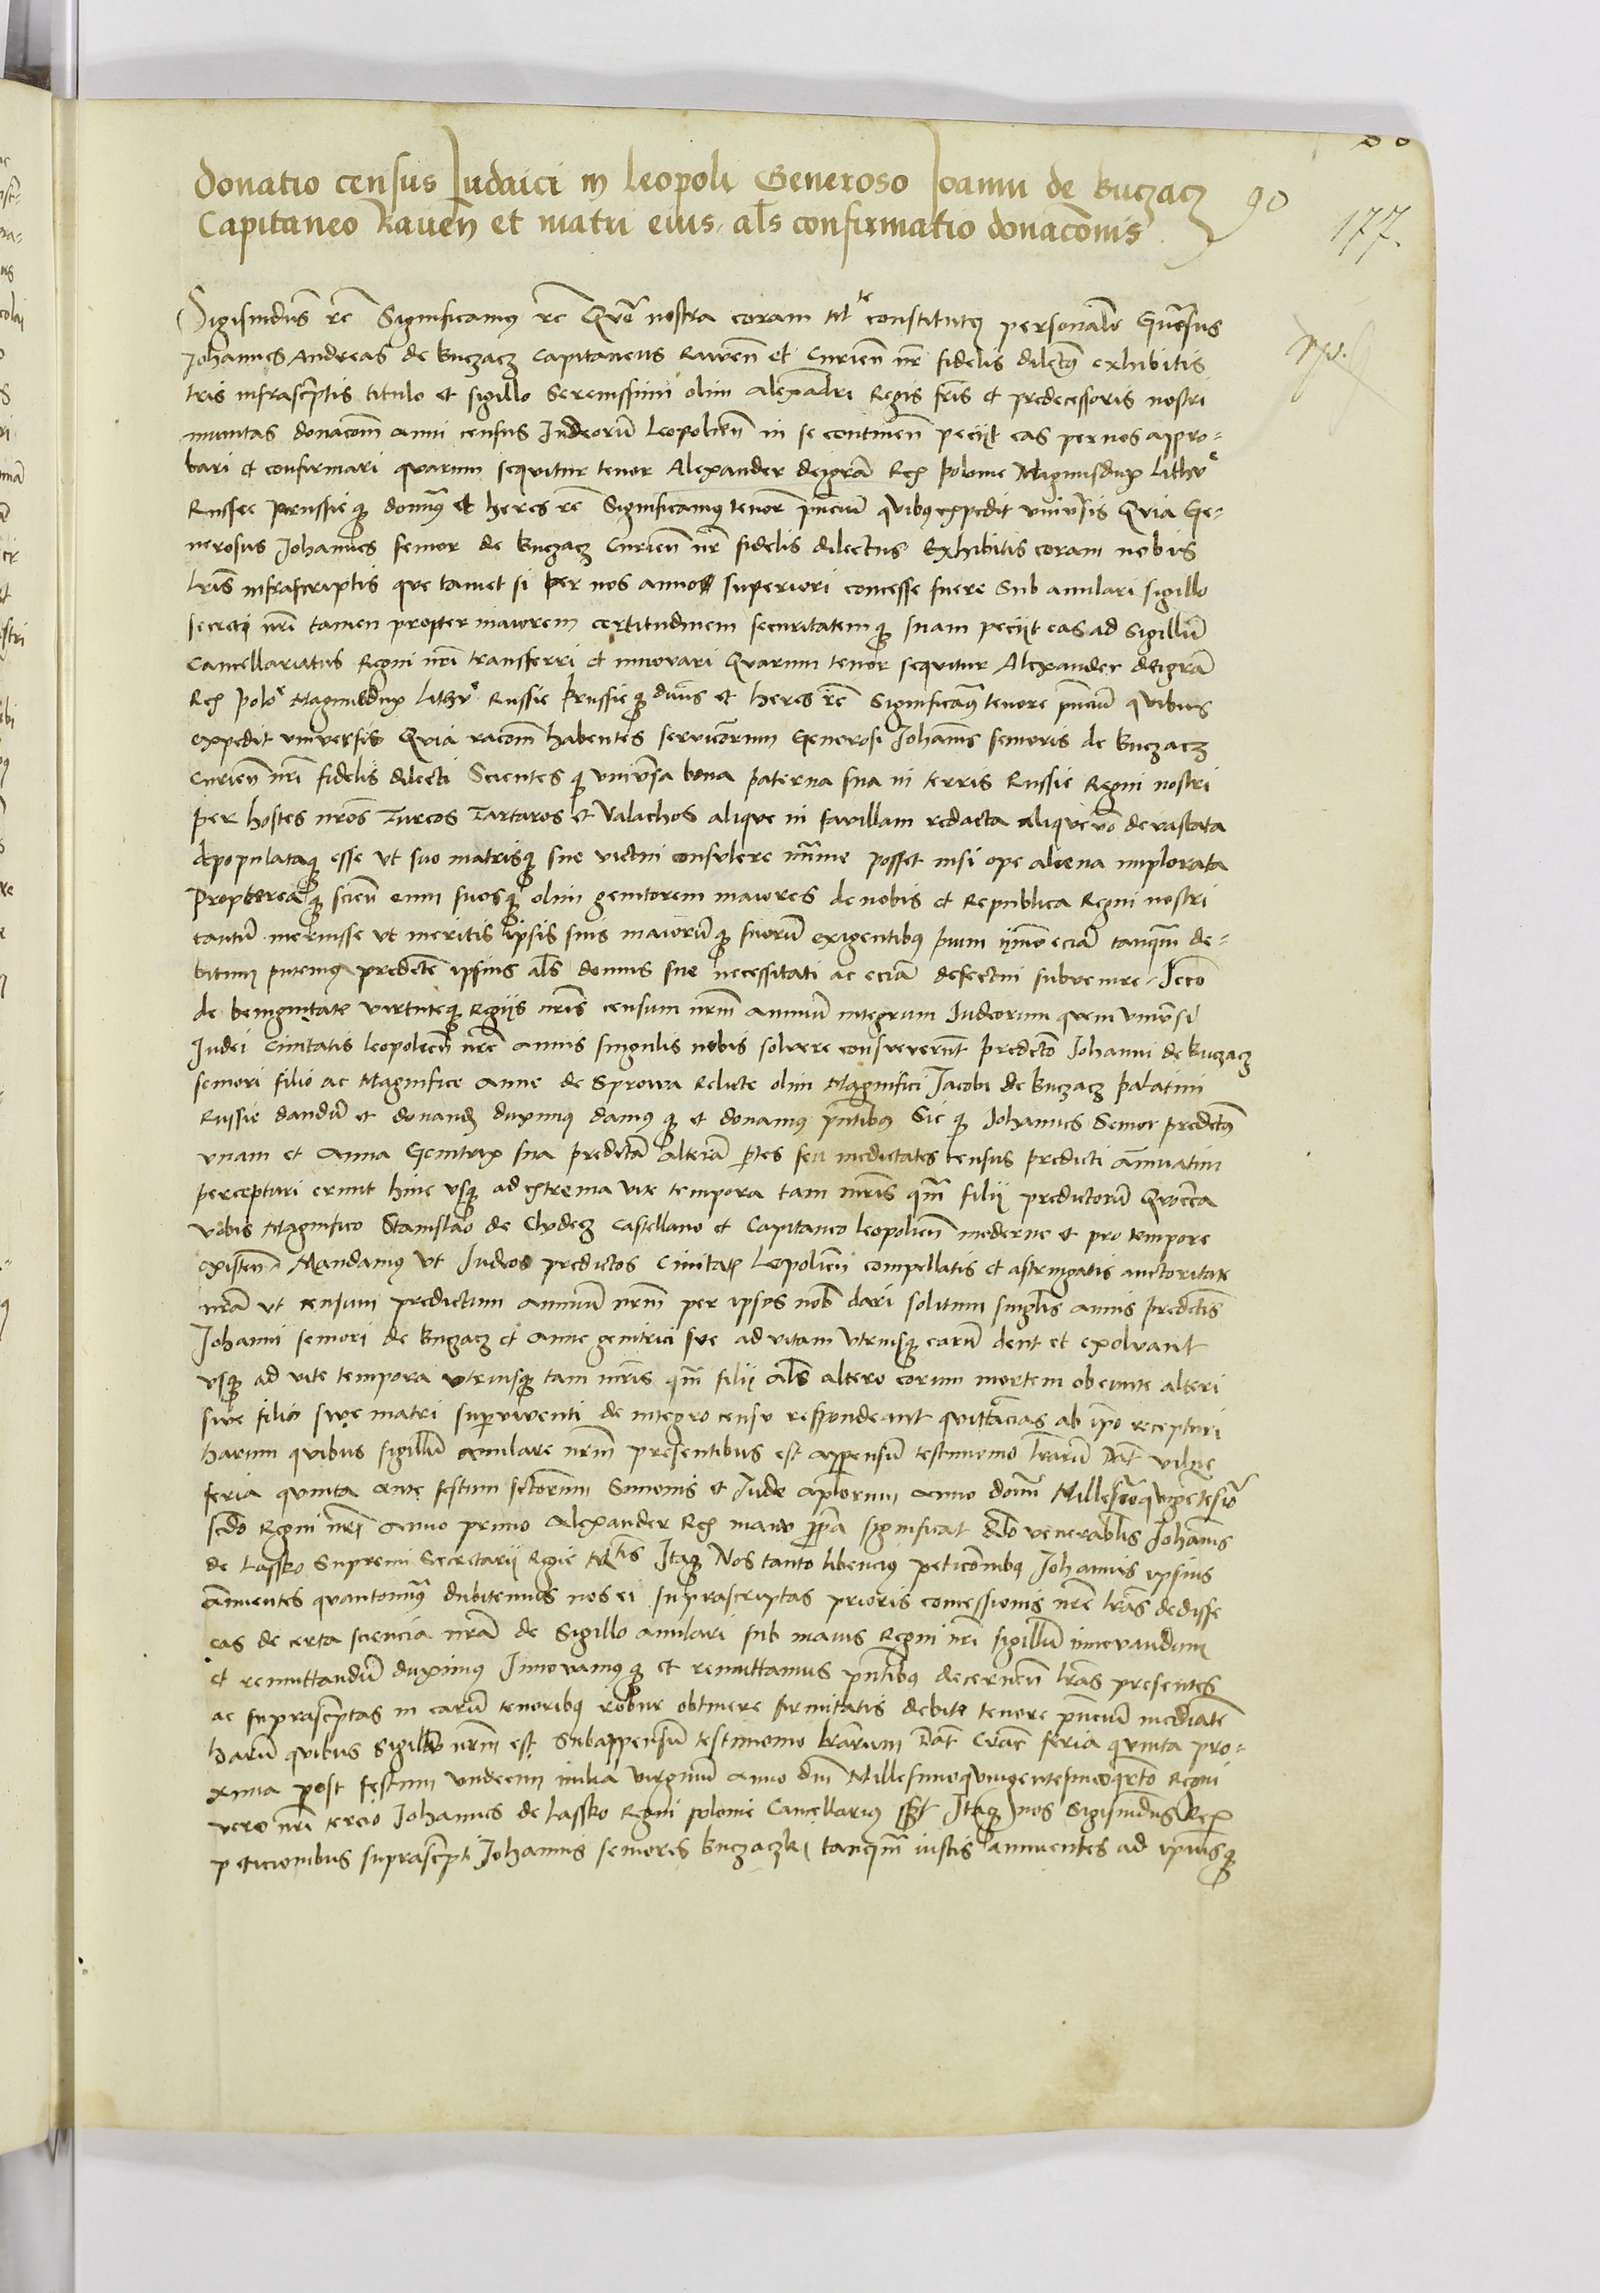 Donatio census Judaici in Leopoli Generoso Joanni de Buczacz
90
Capitaneo Raven̄ et matri eius, al̄s confirmatio donacōnis
177.
Sigismūdus rc̄ Significamus rc̄ Quō nostra coram Mte constitutus personalr̄ Gn̄rosus
Johannes Andreas de Buczacz Capitaneus Rawen̄ et Curien̄ nr̄ fidelis dilectus exhibitis
lr̄is infrascr̄ptis titulo et sigillo Serenissimi olim Alexādri Regis fr̄is et predecessoris nostri
munitas donacōm anni census Judeorū Leopolien̄ in se continen̄ peciit eas per nos appro-
bari et confirmari quarum sequitur tenor Alexander dei grā Rex Polonie Magnusdux Lithue
Russie Prussieque dominus et heres rc̄ Significamus tenore p̄nciū quibus expedit univ̄sis Quia Ge-
nerosus Johannes senior de Buczacz Curien̄ nr̄ fidelis dilectus Exhibitis coram nobis
lr̄is infrascriptis que tamet si per nos anno superiori concesse fuere Sub annulari sigillo
secreti nr̄i tamen propter maiorem certitudinem securitatemque suam peciit eas ad Sigillū
Cancellariatus Regni nr̄i transferri et innovari Quarum tenor sequitur Alexander dei grā
Rex Poloe Magnusdux Lithue Russie Prussieque dn̄us et heres rc̄ Significamus tenore p̄nciū quibus
expedit universis Quia racōm habentes servicōrum Generosi Johannis senioris de Buczacz
Curien̄ nr̄i fidelis dilecti Scientes que univ̄sa bona paterna sua in terris Russie Regni nostri
per hostes nr̄os Turcos Tartaros et Valachos alique in favillam redacta alique v̄o devastata
depopulataque esse ut suo matrisque sue victui consulere minime posset nisi ope aliena implorata
Propterea que scien̄ eum suosque olim genitorem maiores de nobis et Republica Regni nostri
tantū meruisse ut meritis ipsis suis maiorūque suorū exigentibus pium ymmo eciā tanquam de-
bitum putemus predicte ipsius al̄s domus sue necessitati ac eciā defectui subvenire Jccō
de benignitate virtuteque Regiis nr̄is censum nr̄m annuū integrum Judeorum quem univ̄si
Judei Civitatis Leopolien̄ nr̄e annis singulis nobis solvere consueverūt predicto Johanni de Buczacz
seniori filio ac Magnifice Anne de Sprowa Relicte olim Magnifici Jacobi de Buczacz Palatini
Russie dandū et donandū duximus damus que et donamus p̄ntibus Sic que Johannes Senior predictus
unam et Anna Genitrix sua predictā alterā p̄tes seu medietates census predicti annuatim
percepturi erunt hinc usque ad extrema vite tempora tam mr̄is q̄m filii predictorū Quocca
vobis Magnifico Stanislao de Chodecz Castellano et Capitaneo Leopolien̄ moderne et pro tempore
existen̄ Mandamus ut Judeos predictos Civitatis Leopolien̄ compellatis et astringatis auctoritate
nr̄a ut censum predictum annuū nr̄m per ipsos nob̄ dari solitum singl̄is annis predictis
Johanni seniori de Buczacz et Anne genitrici sue ad vitam utriusque earū dent et exolvant
usque ad vite tempora utriusque tam mr̄is q̄m filii Al̄s altero eorum mortem obeunte alteri
sive filio sive matri superviventi de integro censu respondeant quittancias ab ip̄o recepturi
harum quibus sigillū annulare nr̄m presentibus est appensū testimonio lr̄arū Dat̄ vilne
feria quinta ante festum sctōrum Simonis et Jude aplōrum anno domī Millesīoquīgētesīo
scd̄o Regni nr̄i anno primo Alexander Rex manu p̄p̄a significat D̄lo venerabl̄is Johannis
de Lassko Supremi Secretarii Regie Mtis Itaque Nos tanto libencius peticōnibus Johannis ipsius
annuentes quantomus dubitemus nos ei suprascriptas prioris concessionis nr̄e lr̄as dedisse
eas de certa sciencia nr̄a de Sigillo anulari sub maius Regni nr̄i sigillū innovandum
et remittandū duximus Innovamusque et remittamus p̄ntibus decernen̄ lr̄as presentes
ac suprascr̄ptas in earū tenoribus robur obtinere firmitatis debite tenore p̄nciū mediate
harū quibus Sigillū nr̄m est Subappensū testimonio lr̄arum Dat̄ Crac̄ feria quinta pro-
xima post festum undecim milia virginū anno dm̄ Millesimoquingentesimoq̄rto Regni
vero nr̄i tercio Johannes de Lassko Regni Polonie Cancellarius sst̄ Itaque nos Sigismūdus Rex
peticionibus suprascr̄pti Johannis senioris Buczaczki tanq̄m iustis annuentes ad ipsiusque